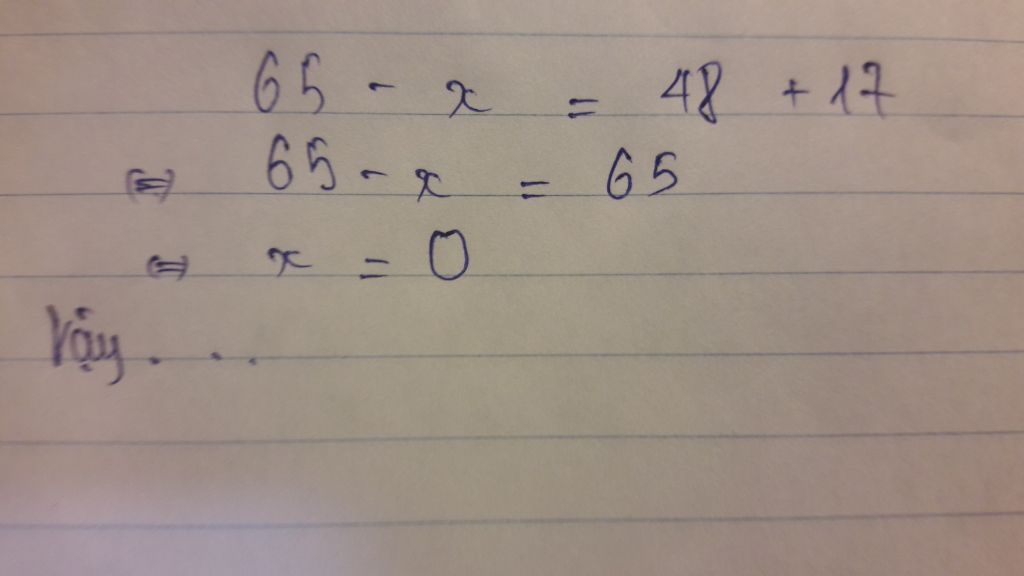 65 - x = 48 + 17
⇔ 65 - x = 65
⇔ x = 0
Vậy . . .